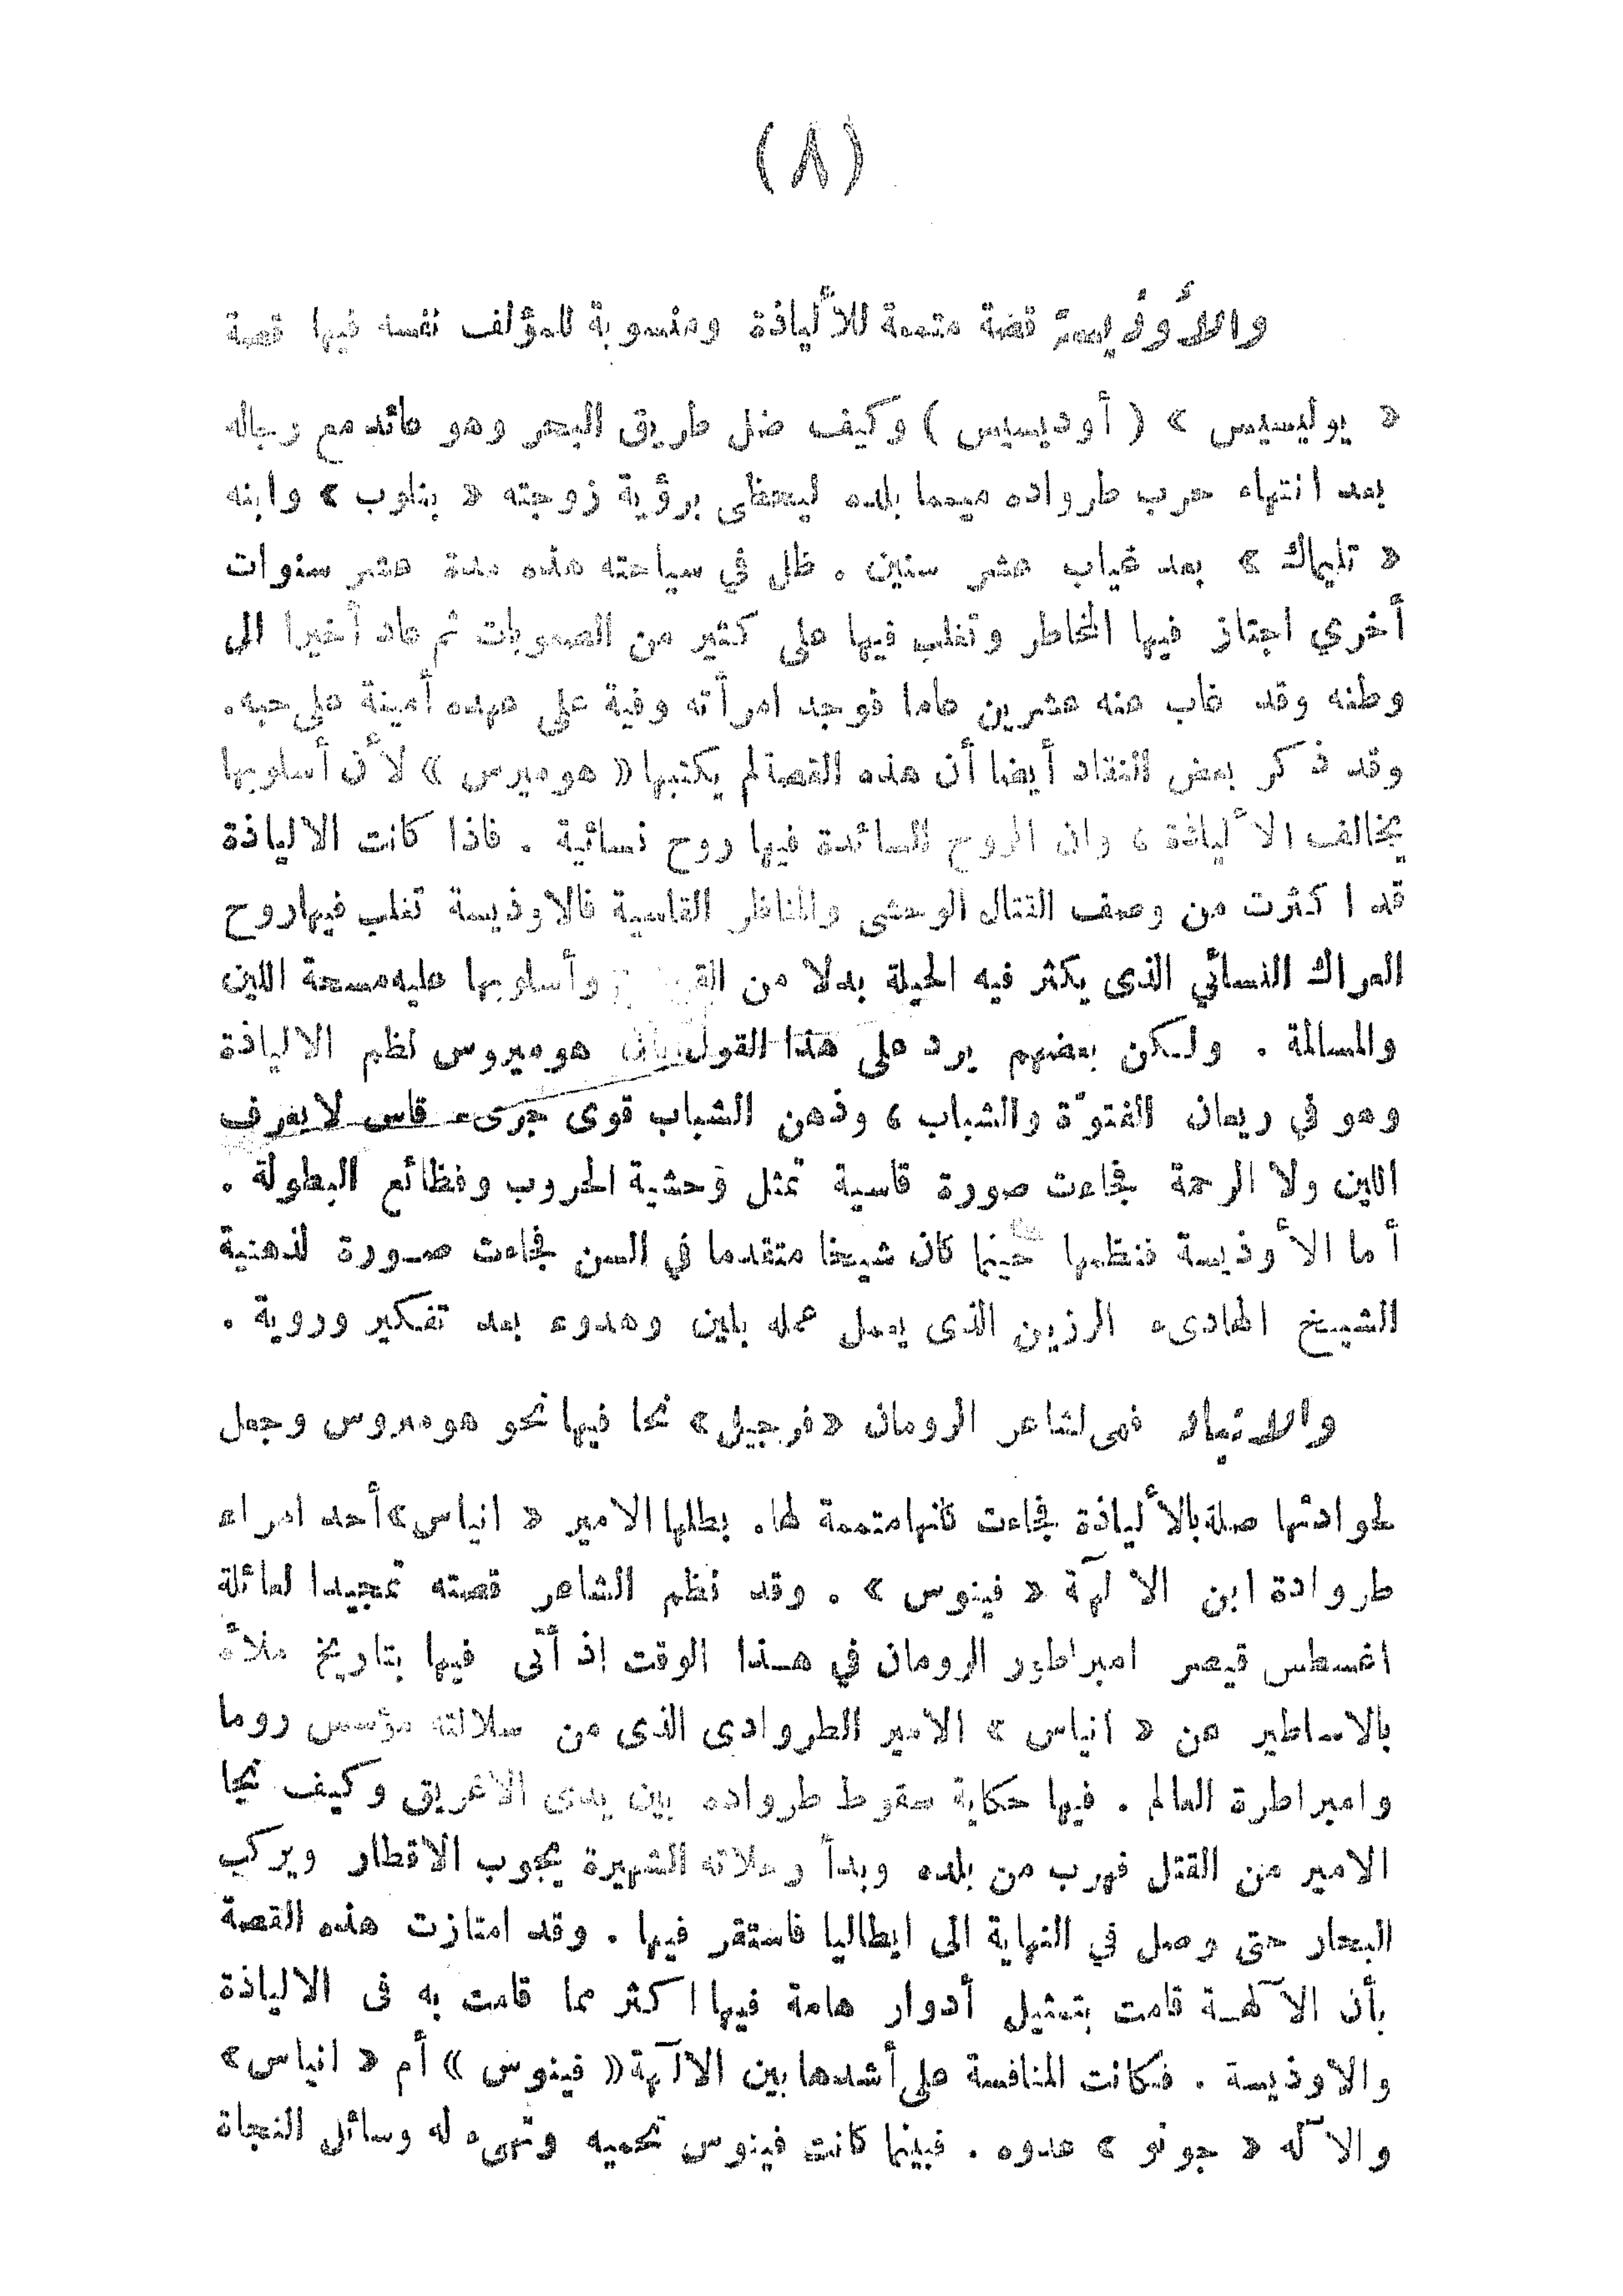 (٨)
والأوذيسة قصة متممة للألياذة ومنسوبة للمؤلف نفسه فيها قصة
« يوليسيس » ( أوديسيس ) وكيف ضل طريق البحر وهو عائد مع رجاله
بعد انتهاء حرب طرواده ميمما بلده ليحظى برؤية زوجته « بنلوب » وابنه
« تليماك » بعد غياب عشر سنين . ظل في سياحته هذه مدة عشر سنوات
أخري اجتاز فيها المخاطر وتغلب فيها على كثير من الصعوبات ثم عاد أخيرا الى
وطنه وقد غاب عنه عشرين عاما فوجد امرأته وفية على عهده أمينة على حبه.
وقد ذكر بعض النقاد أيضا أن هذه القصة لم يكتبها « هوميرس » لأن أسلوبها
يخالف الألياذة ، وان الروح السائدة فيها روح نسائية . فاذا كانت الالياذة
قد اكثرت من وصف القتال الوحشى والمناظر القاسية فالاوذيسة تغلب فيها روح
العراك النسائي الذى يكثر فيه الحيلة بدلا من وأسلوبها عليه مسحة اللين
والمسالمة . ولكن بعضهم يرد على هذا القول بأن هوميروس نظم الالياذة
وهو في ريعان الفتوّة والشباب ، وذهن الشباب قوى جرىء قاس لا يعرف
اللين ولا الرحمة فجاءت صورة قاسية تمثل وحشية الحروب وفظائع البطولة .
أما الأوذيسة فنظمها حينما كان شيخا متقدما في السن فجاءت صورة لذهنية
الشيخ الهادىء الرزين الذى يعمل عمله بلين وهدوء بعد تفكير وروية .
والانياد فهى لشاعر الرومان «فرجيل» نحا فيها نحو هوميروس وجعل
لحوادثها صلة بالألياذة فجاءت كأنها متممة لها. بطلها الامير « انياس» أحد امراء
طروادة ابن الآلهة « فينوس » . وقد نظم الشاعر قصته تمجيدا لعائلة
اغسطس قيصر امبراطور الرومان في هذا الوقت إذ أتى فيها بتاريخ ملأه
بالاساطير عن « انياس » الامير الطروادى الذى من سلالته مؤسس روما
وامبراطرة العالم . فيها حكاية سقوط طرواده بين يدى الاغريق وكيف نجا
الامير من القتل فهرب من بلده وبدأ رحلاته الشهيرة يجوب الاقطار ويركب
البحار حتى وصل في النهاية الى ايطاليا فاستقر فيها . وقد امتازت هذه القصة
بأن الآلهة قامت بتمثيل أدوار هامة فيها اكثر مما قامت به فى الالياذة
والاوذيسة . فكانت المنافسة على أشدها بين الآلهة « فينوس » أم « انياس»
والآله « جونو » عدوه . فبينما كانت فينوس تحميه وتهىء له وسائل النجاة